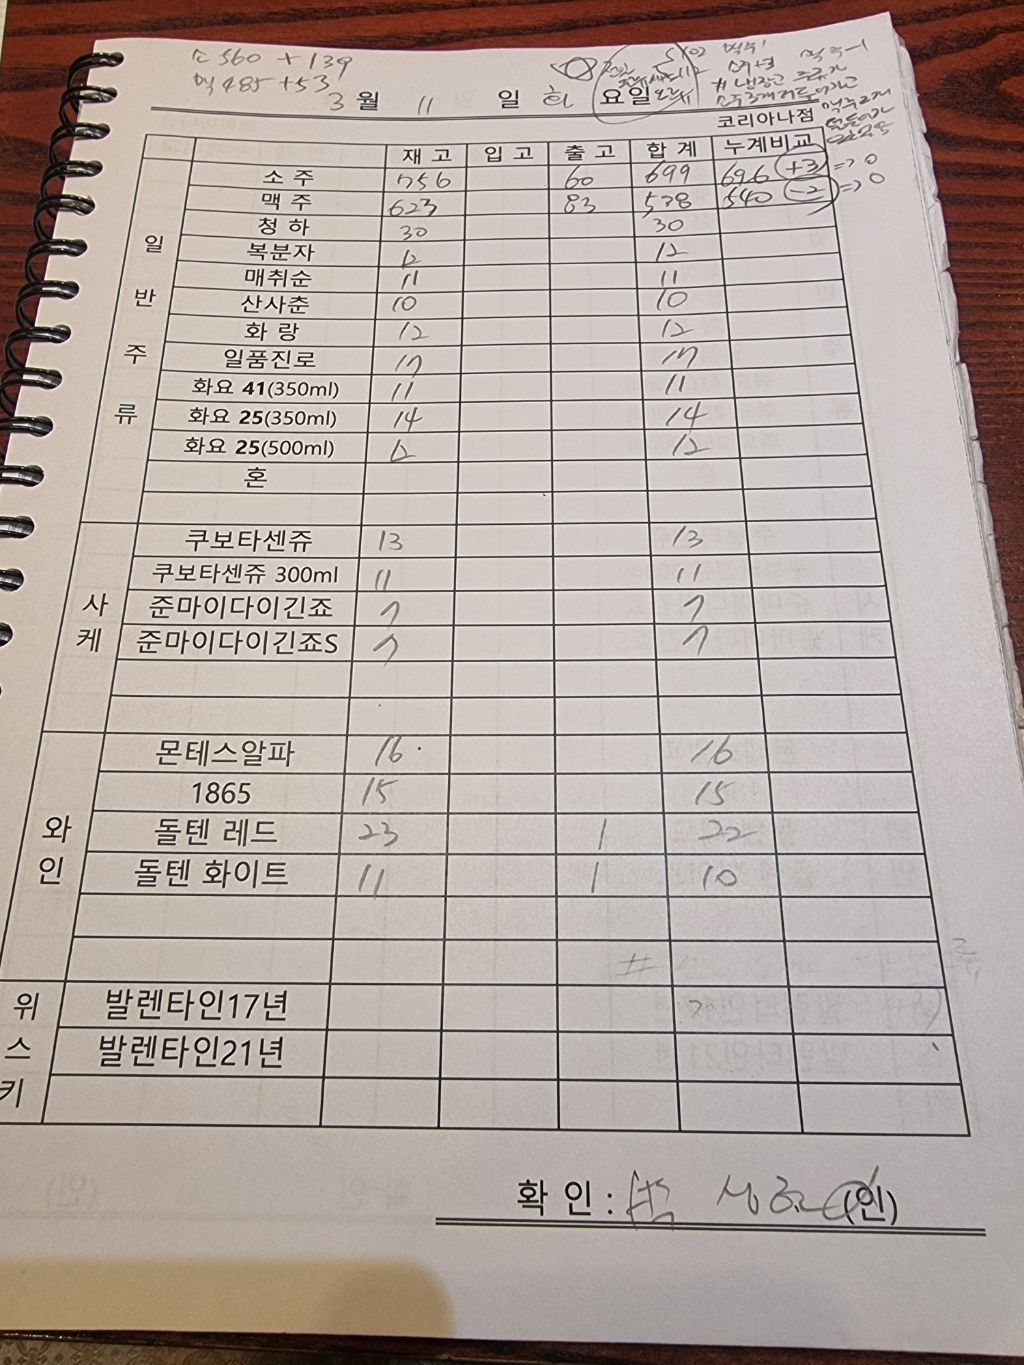 소 560 + 139
맥 485 + 53
3 월 11 일 화 요일
코리아나점
재 고 입 고 출 고 합 계 누계비교
일반주류
소 주 756 60 699 696 +3 => 0
맥 주 623 83 538 540 -2 => 0
청 하 30 30
복분자 12 12
매취순 11 11
산사춘 10 10
화 랑 12 12
일품진로 17 17
화요 41(350ml) 11 11
화요 25(350ml) 14 14
화요 25(500ml) 12 12
혼
사케
쿠보타센쥬 13 13
쿠보타센쥬 300ml 11 11
준마이다이긴죠 7 7
준마이다이긴죠S 7 7
와인
몬테스알파 16 16
1865 15 15
돌텐 레드 23 1 22
돌텐 화이트 11 1 10
위스키
발렌타인17년
발렌타인21년
확 인 : (인)